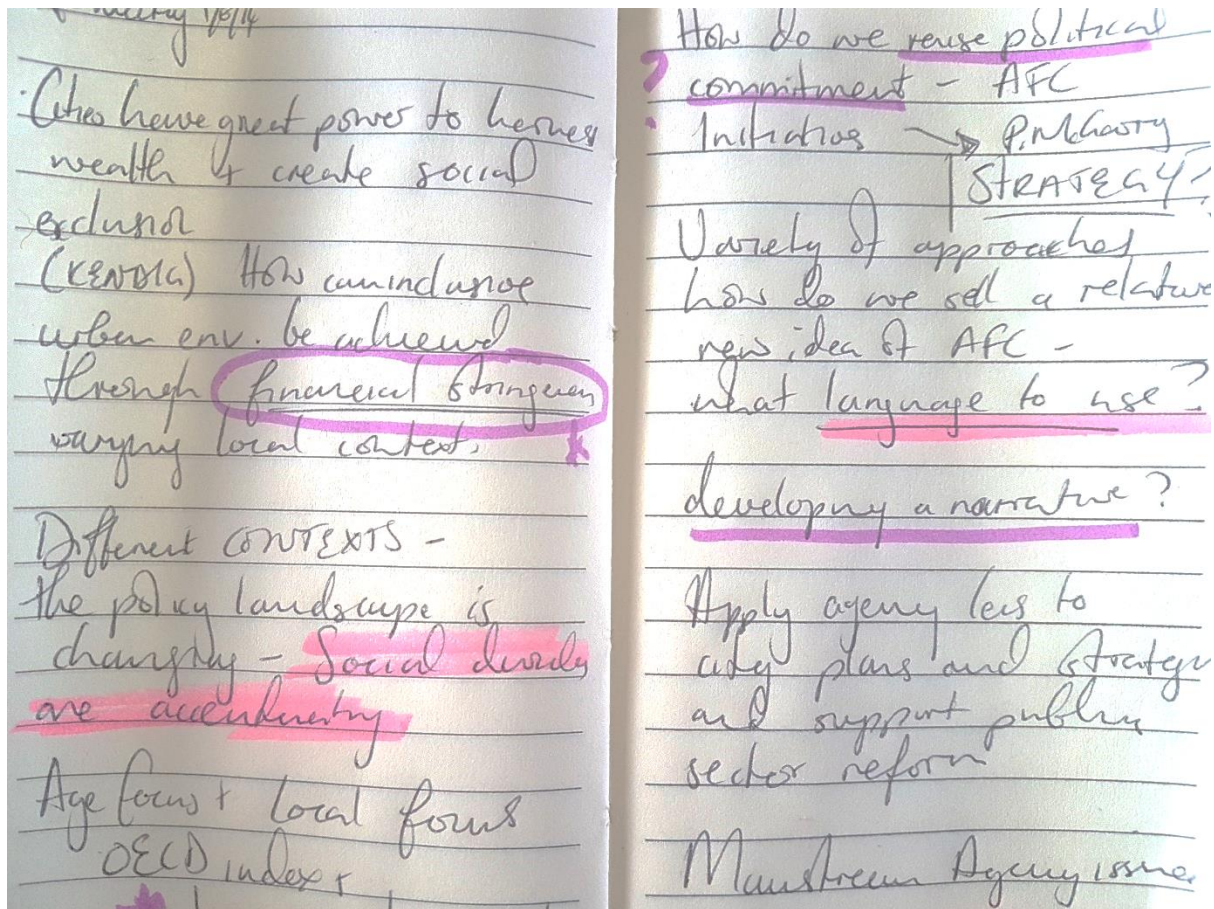 1/8/14
Cities have great power to harness
wealth + create social
exclusion
(KENDIG) How can inclusive
urban env. be achieved
through financial stringency
varying local context.
Different CONTEXTS -
the policy landscape is
changing - Social
are
Age focus + local focus
OECD index +
How do we reuse political
commitment - AFC
Initiatives P. McGarry
STRATEGY?
Variety of approaches
how do we sell a relative
new idea of AFC -
what language to use?
developing a narrative?
Apply ageing lens to
city plans and strategy
and support public
sector reform
Mainstream Ageing issue